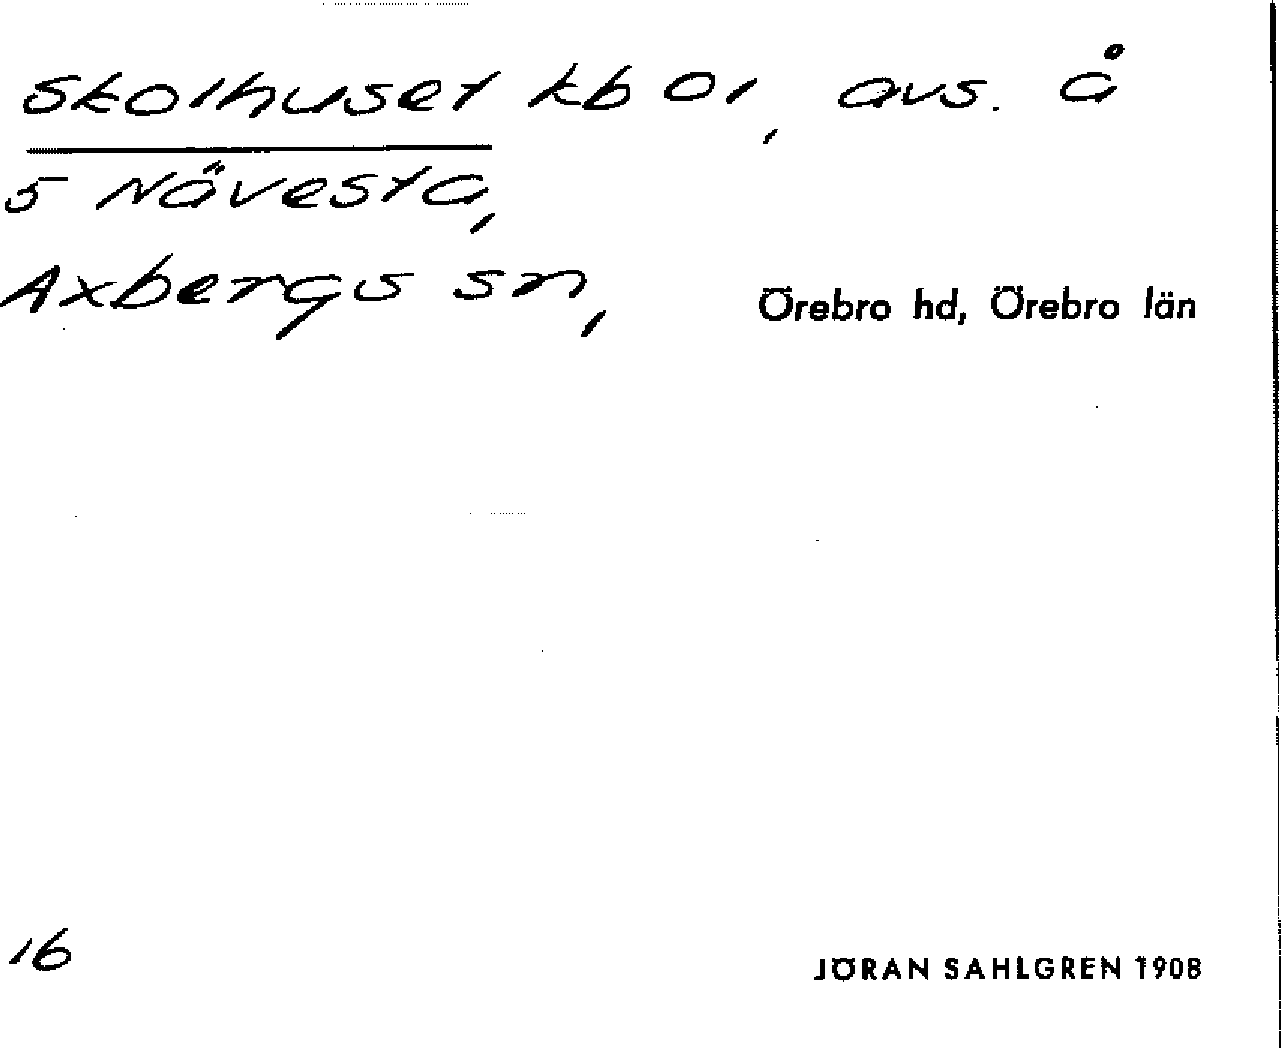 Skolhuset kb 01, avs. å
5 Nävesta,
Axbergs sn, Örebro hd, Örebro län
16
JÖRAN SAHLGREN 1908